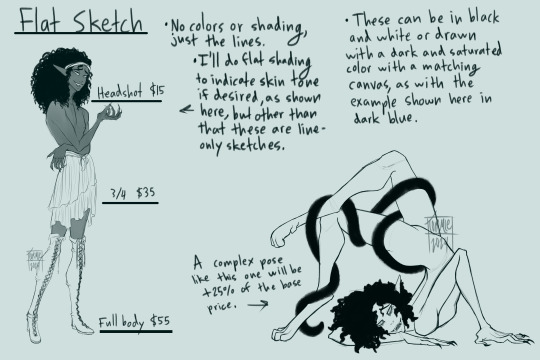 Flat Sketch
• No colors or shading,
just the lines.
• I'll do flat shading
to indicate skin tone
if desired, as shown
← here, but other than
that these are line-
only sketches.
• These can be in black
and white or drawn
with a dark and saturated
color with a matching
canvas, as with the
example shown here in
dark blue.
Headshot $15
3/4 $35
Full body $55
A complex pose
like this one will be
+25% of the base
price. →